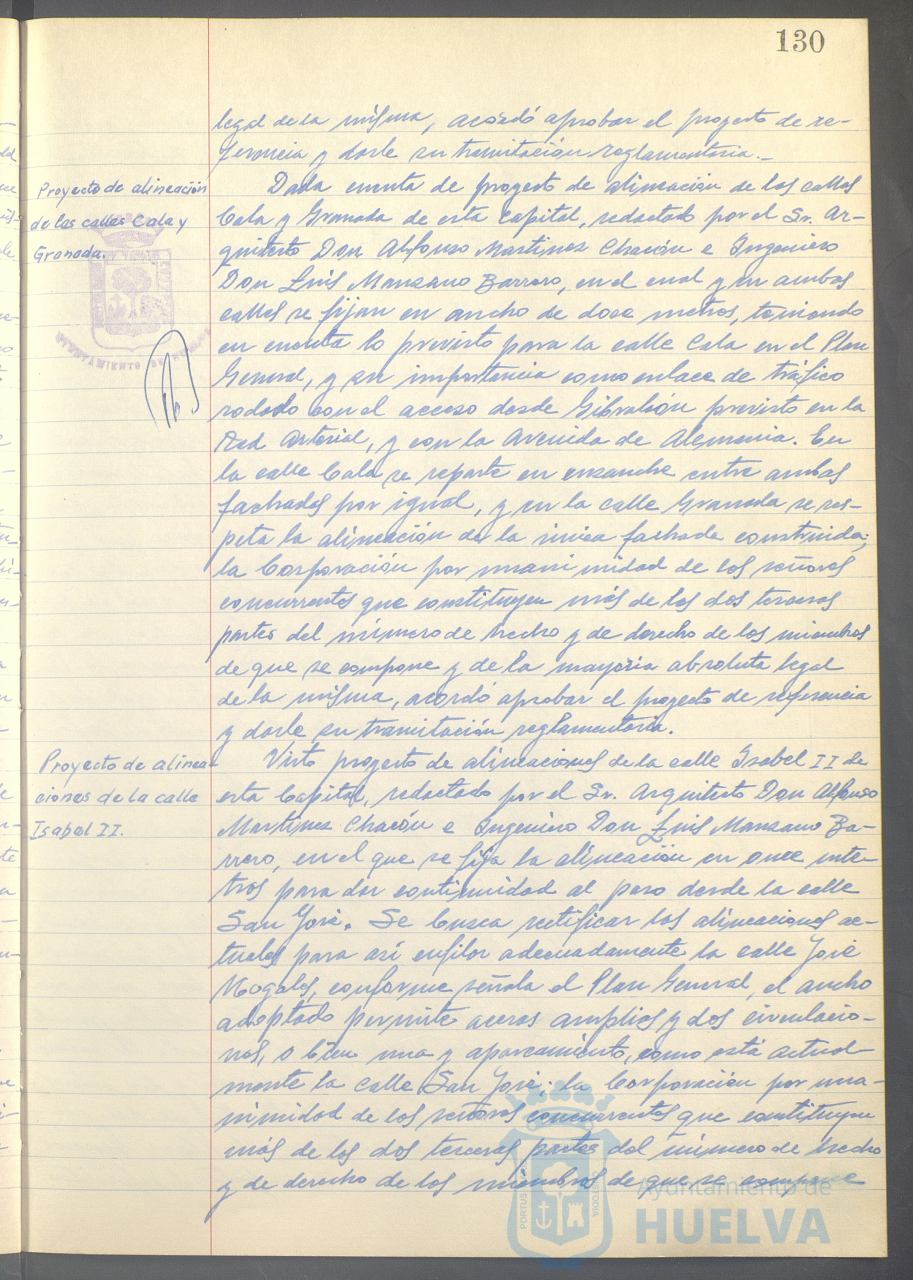 130
legal de la misma, acordó aprobar el proyecto de re-
ferencia y darle su tramitación reglamentaria.-
Proyecto de alineación
de las calles Cala y
Granada.
Dada cuenta de proyecto de alineación de las calles
Cala y Granada de esta capital, redactado por el Sr. Ar-
quitecto Don Alfonso Martinez Chacón e Ingeniero
Don Luis Manzano Barrero, en el cual y en ambas
calles se fijan en ancho de doce metros, teniendo
en cuenta lo previsto para la calle Cala en el Plan
General, y su importancia como enlace de tráfico
rodado con el acceso desde Gibraleón previsto en la
Red Arterial, y con la Avenida de Alemania. En
la calle Cala se reparte en ensanche entre ambas
fachadas por igual, y en la calle Granada se res-
peta la alineación de la única fachada construida;
la Corporación por unanimidad de los señores
concurrentes que constituyen más de las dos terceras
partes del número de hecho y de derecho de los miembros
de que se compone y de la mayoría absoluta legal
de la misma, acordó aprobar el proyecto de referencia
y darle su tramitación reglamentaria.
Proyecto de alinea-
ciones de la calle
Isabel II.
Visto proyecto de alineaciones de la calle Isabel II de
esta Capital, redactado por el Sr. Arquitecto Don Alfonso
Martinez Chacón e Ingeniero Don Luis Manzano Ba-
rrero, en el que se fija la alineación en once me-
tros para dar continuidad al paso desde la calle
San José. Se busca rectificar las alineaciones ac-
tuales para así enfilar adecuadamente la calle José
Nogales, conforme señala el Plan General, el ancho
adoptado permite aceras amplias y dos circulacio-
nes, o bien una y aparcamiento, como está actual-
mente la calle San José. la Corporación por una-
nimidad de los señores concurrentes que constituyen
más de las dos terceras partes del número de hecho
y de derecho de los miembros de que se compone
AYUNTAMIENTO DE HUELVA
PORTUS
CUSTODIA
Ayuntamiento de
HUELVA